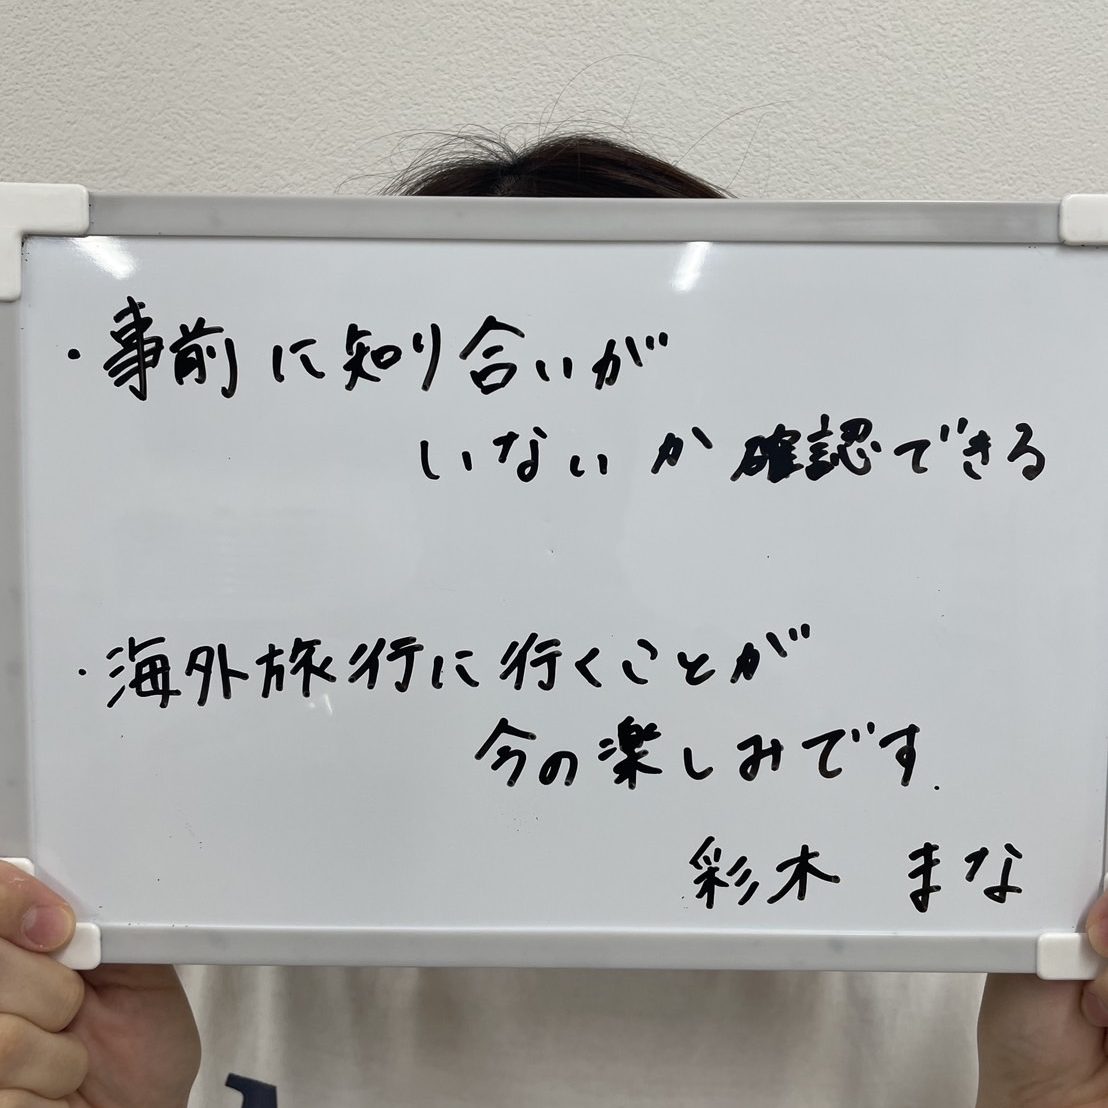 ・事前に知り合いが
いないか確認できる
・海外旅行に行くことが
今の楽しみです.
彩木 まな